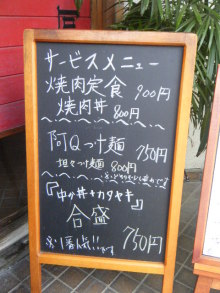 サービスメニュー
焼肉定食 900円
焼肉丼 800円
阿Qつけ麺 750円
坦々つけ麺 800円
『中力丼+カタヤキ』
合盛
750円